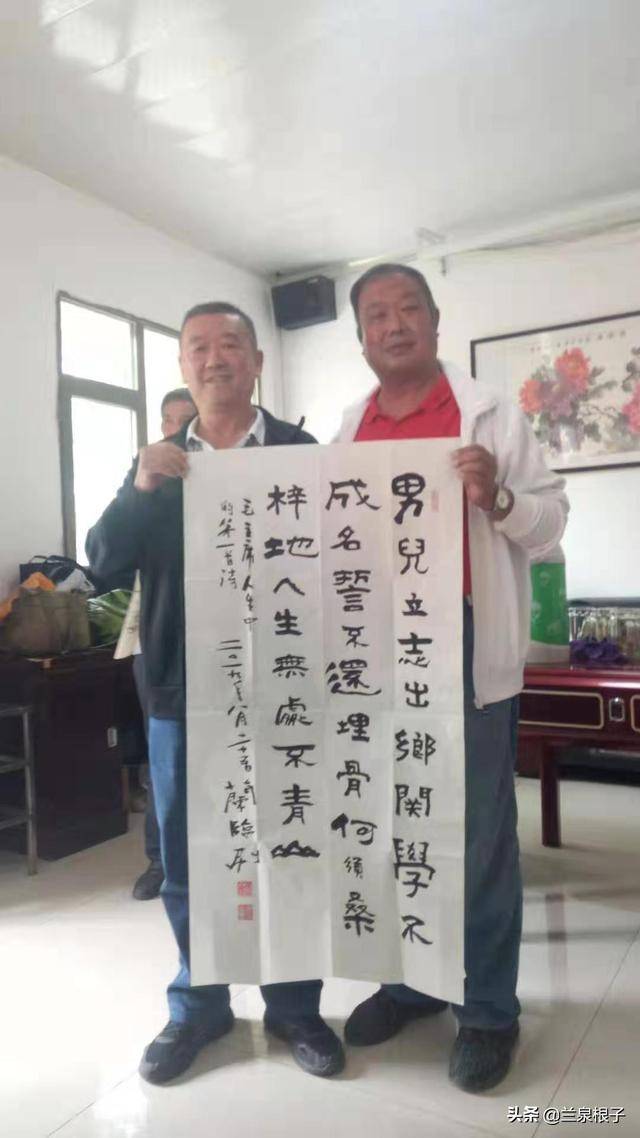 男兒立志出鄉関學不
成名誓不還埋骨何須桑
梓地人生無處不青山
毛主席人生中
的第一首诗
二〇一九年八月二十 蘭臨
头条 @兰泉根子